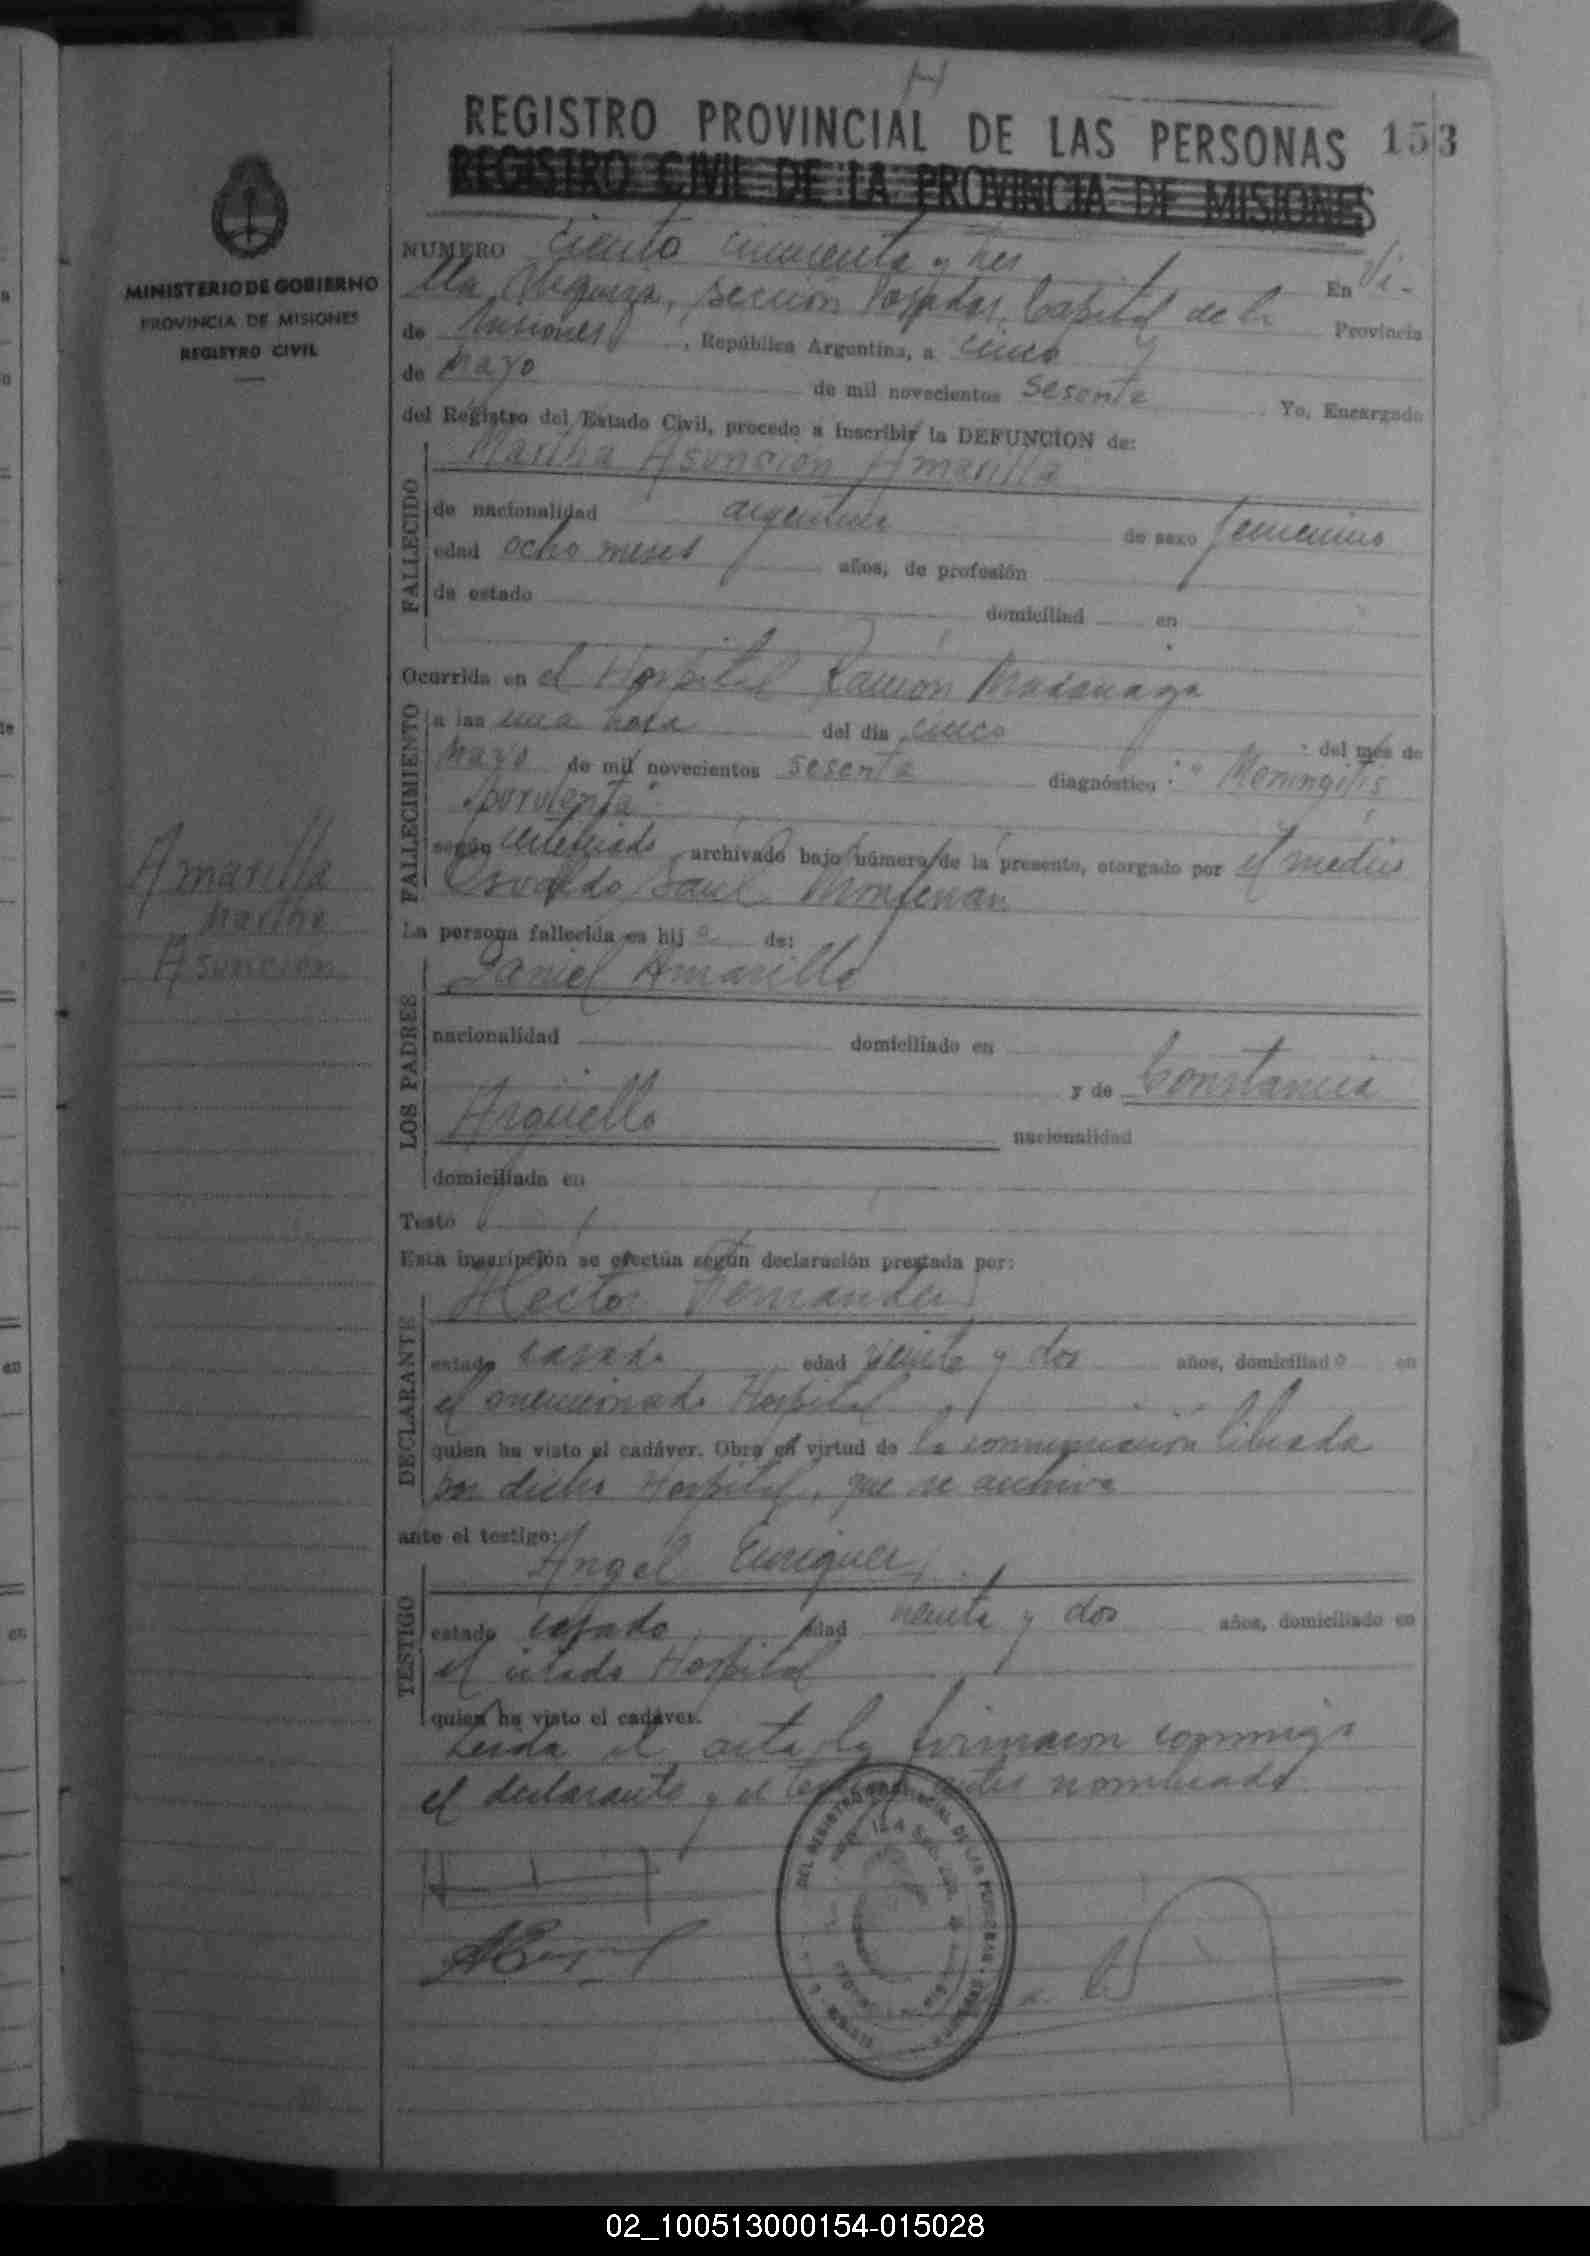 REGISTRO PROVINCIAL DE LAS PERSONAS 153
REGISTRO CIVIL DE LA PROVINCIA DE MISIONES
MINISTERIO DE GOBIERNO
PROVINCIA DE MISIONES
REGISTRO CIVIL
NUMERO ciento cincuenta y tres En Vi-
lla Urquiza, sección Posadas, Capital de la Provincia
de Misiones, República Argentina, a cinco
de Mayo de mil novecientos sesenta. Yo, Encargado
del Registro del Estado Civil, procedo a inscribir la DEFUNCION de:
Martha Asuncion Amarilla
FALLECIDO
de nacionalidad argentina de sexo femenino
edad ocho meses años, de profesión
de estado domiciliad en
Ocurrida en el Hospital Ramón Madariaga
FALLECIMIENTO
a las una hora del dia cinco del mes de
Mayo de mil novecientos sesenta diagnóstico: "Meningitis
purulenta"
según certificado archivado bajo número de la presente, otorgado por el medico
Osvaldo Saul
Amarilla
Martha
Asuncion
La persona fallecida es hij a de:
LOS PADRES
Daniel Amarilla
nacionalidad domiciliado en
y de Constancia
Arguello nacionalidad
domiciliada en
Testó
Esta inscripción se efectúa según declaración prestada por:
DECLARANTE
Hector Fernandez
estado casado edad veinte y dos años, domiciliado en
el mencionado Hospital
quien ha visto el cadáver. Obra en virtud de la comunicación librada
por dicho Hospital, que se archiva
ante el testigo:
TESTIGO
Angel Enriquez
estado casado edad y dos años, domiciliado en
el citado Hospital
quien ha visto el cadáver.
Leida el acta la firmaron conmigo
el declarante y el testigo antes nombrado
DEL REGISTRO PROVINCIAL DE LAS PERSONAS
02_100513000154-015028